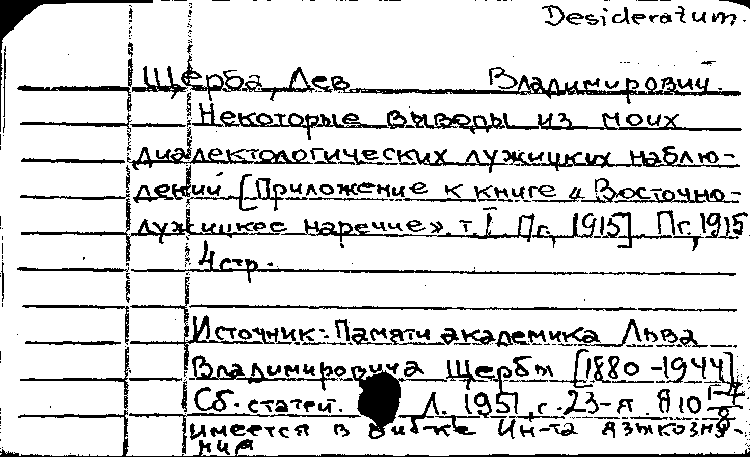 Desideratum.
Щерба, Лев Владимирович.
Некоторые выводы из моих
диалектологических лужицких наблю-
дений [Приложение к книге «Восточно-
лужицкое наречие». т. I Пг., 1915] Пг., 1915
4 стр.
Источник: Памяти академика Льва
Владимировича Щербы [1880-1944]
Сб. статей. Л. 1951, с. 23-я
имеется в биб-ке Ин-та языкозна-
ния